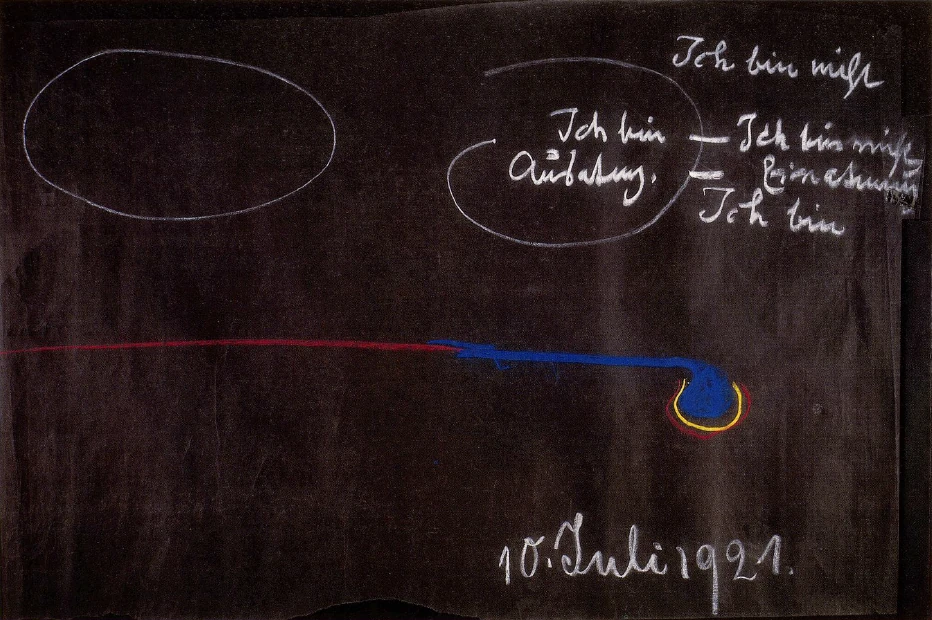 Ich bin nicht
Ich bin — Ich bin nicht
Ausatmg. — Einatmung
Ich bin
10. Juli 1921.